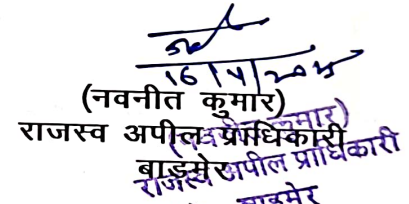 16/4/2025
(नवनीत कुमार)
राजस्व अपील प्राधिकारी
बाड़मेर
कुमार)
राजस्व अपील प्राधिकारी
बाड़मेर